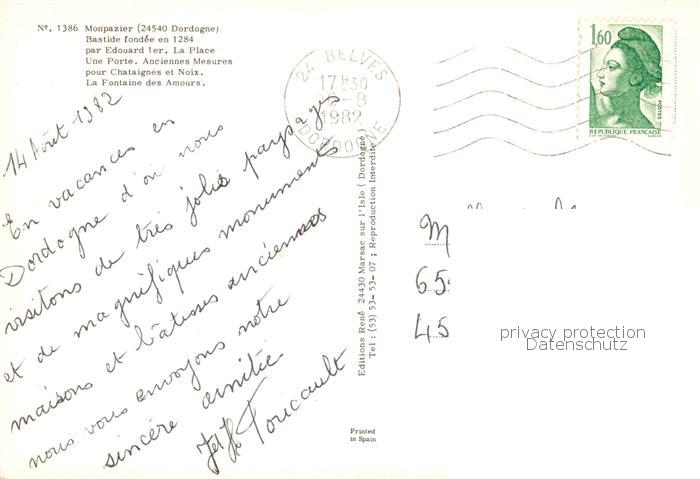 Nº. 1386 Monpazier (24540 Dordogne)
Bastide fondée en 1284
par Edouard 1er. La Place
Une Porte. Anciennes Mesures
pour Chataignes et Noix.
La Fontaine des Amours.
14 Août 1982
En vacances en
Dordogne d'où nous
visitons de très jolis paysages
et de magnifiques monuments
maisons et bâtisses anciennes
nous vous envoyons notre
sincère amitié
Foucault
24 BELVES
17H30
-8
1982
DORDOGNE
1,60
POSTES
REPUBLIQUE FRANÇAISE
Editions René 24430 Marsac sur l'Isle ( Dordogne )
Tel : (53) 53-53-07 ; Reproduction Interdite
Printed
in Spain
M
65
45
privacy protection
Datenschutz